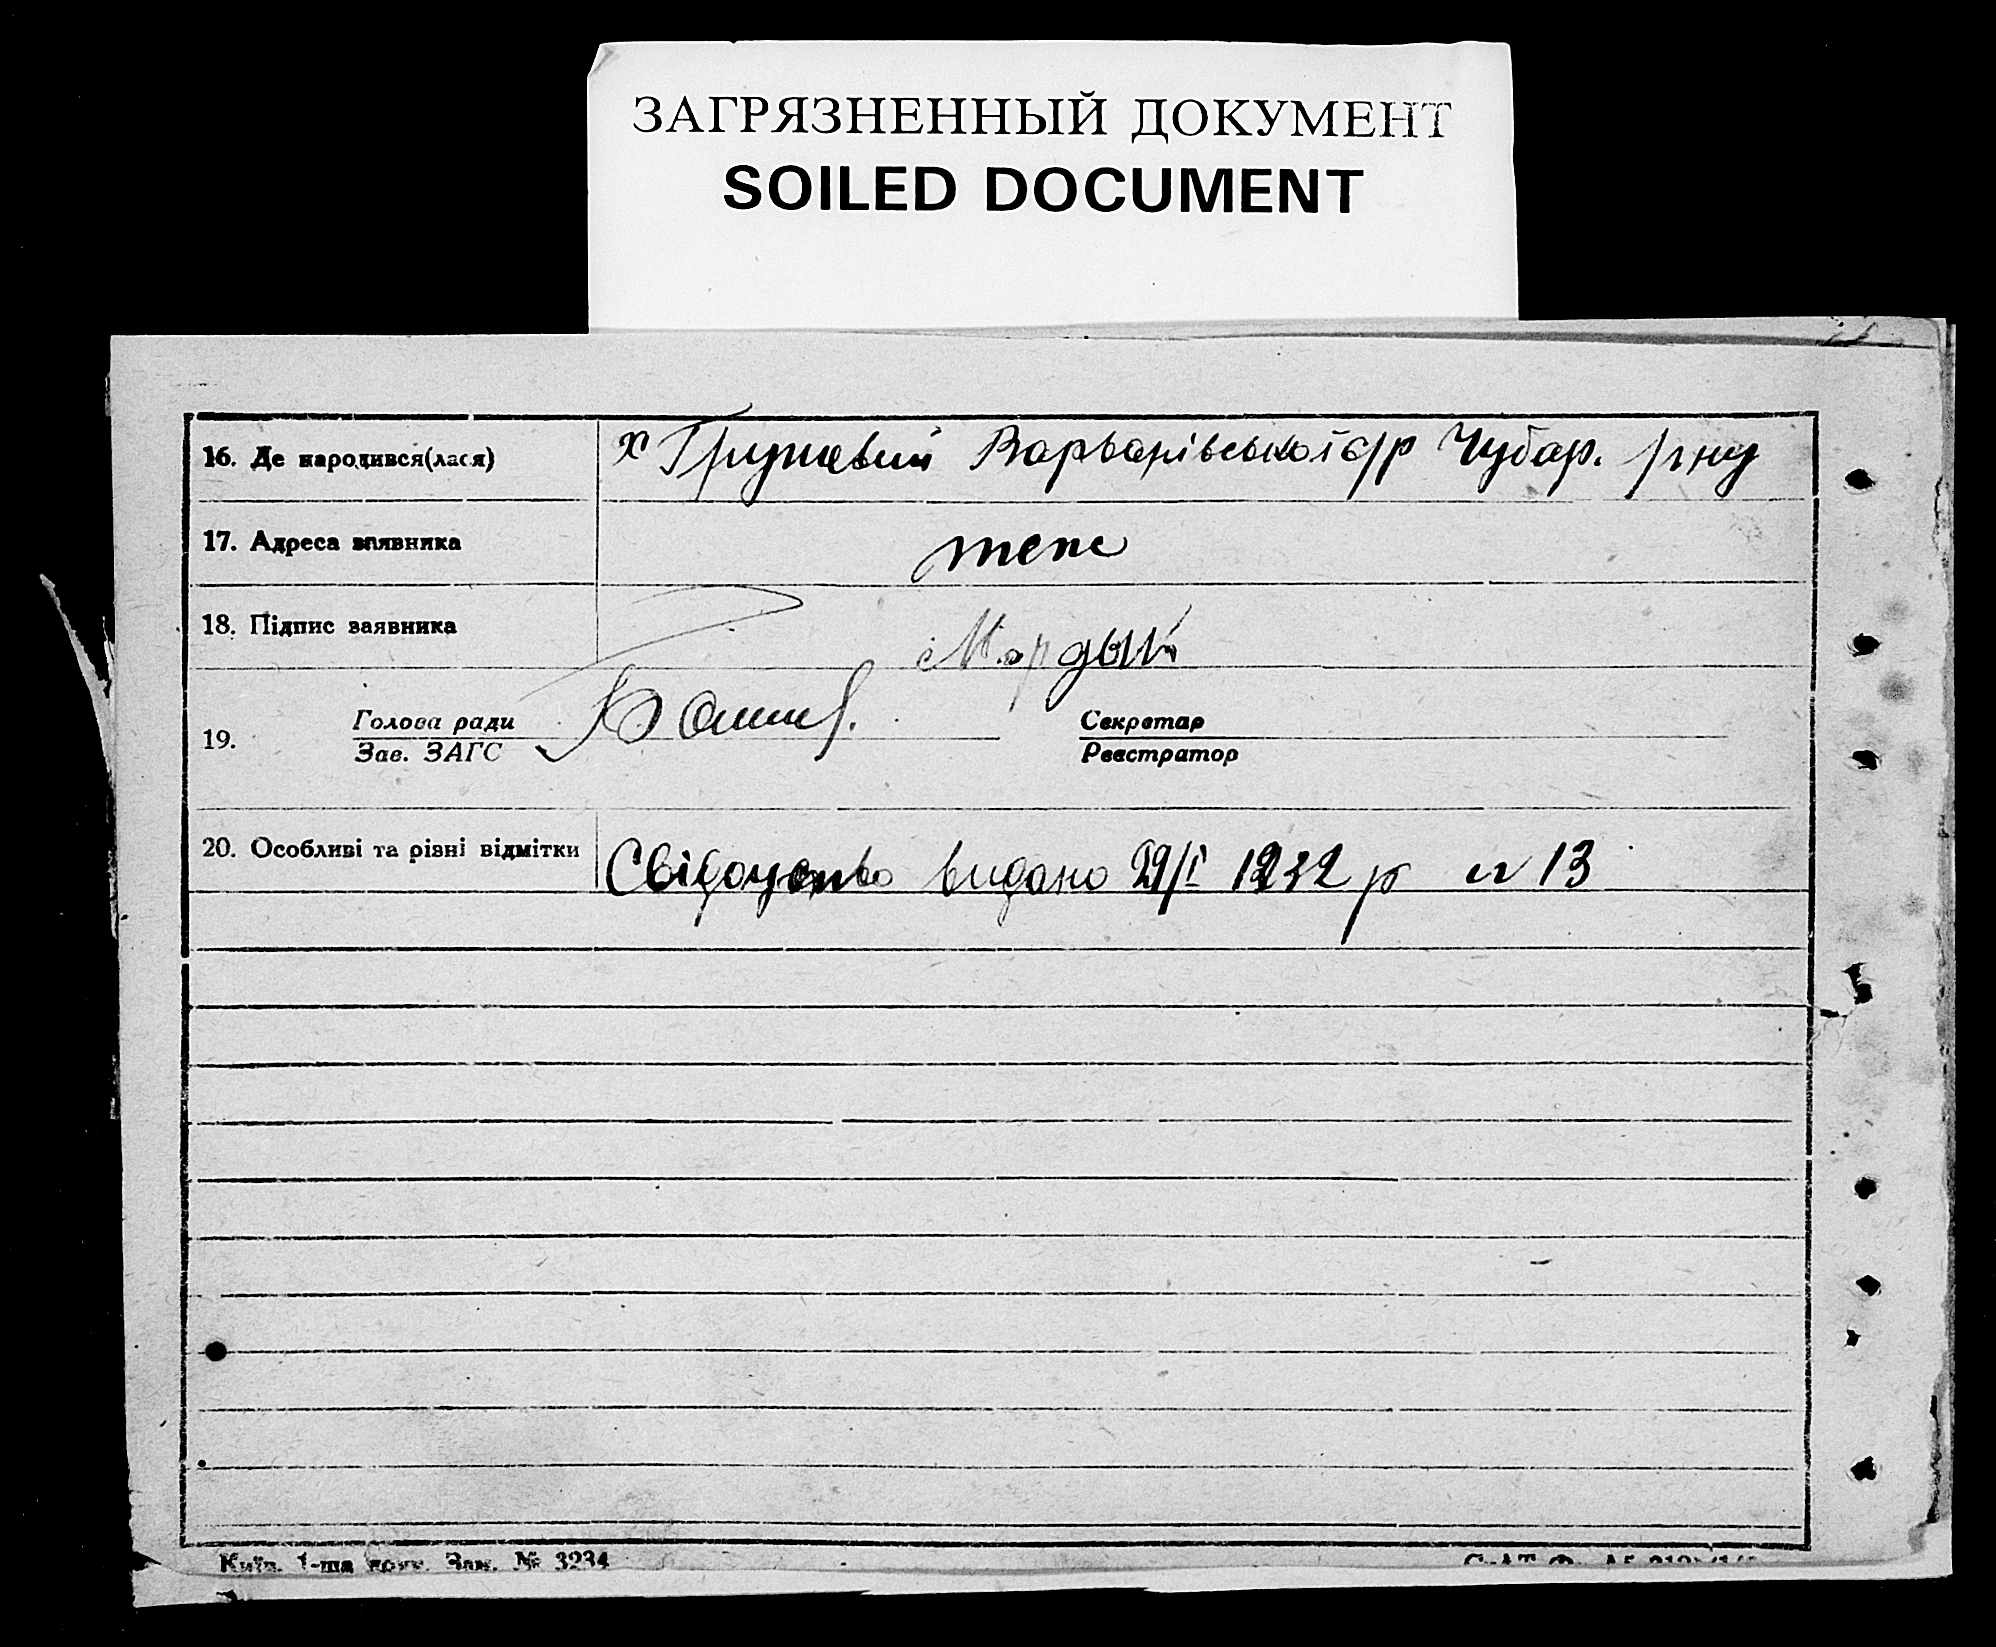 ЗАГРЯЗНЕННЫЙ ДОКУМЕНТ
SOILED DOCUMENT
16. Де народився(лася) х Грушевий Варварівської с/р Чубар. р/ну
17. Адреса заявника теж
18. Підпис заявника
19. Голова ради
Зав. ЗАГС
Секретар
Реєстратор
20. Особливі та різні відмітки Свідоцтво видано 29/I 1932 р № 13
Київ. 1-ша друк. Зам. № 3234